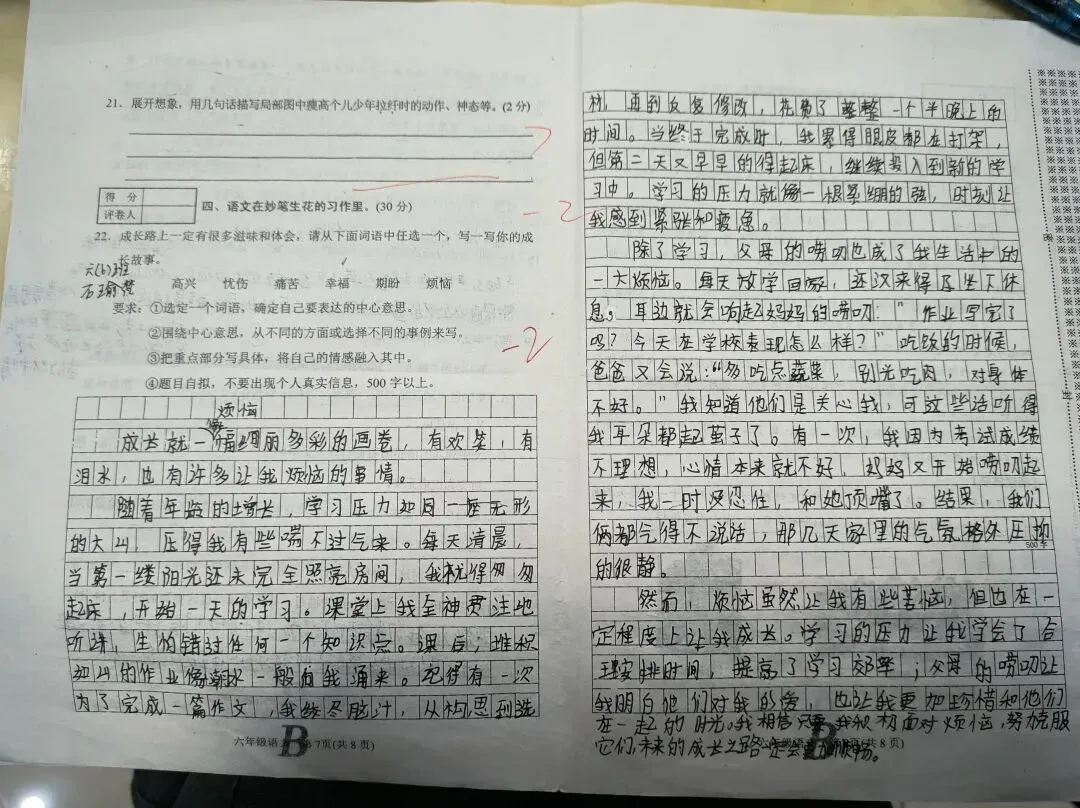 21．展开想象，用几句话描写局部图中瘦高个儿少年拉纤时的动作、神态等。(2 分)
得 分
评卷人
四、语文在妙笔生花的习作里。(30 分)
-2
22．成长路上一定有很多滋味和体会，请从下面词语中任选一个，写一写你的成
长故事。
六(6)班
高兴 忧伤 痛苦 幸福 期盼 烦恼
要求：①选定一个词语，确定自己要表达的中心意思。
②围绕中心意思，从不同的方面或选择不同的事例来写。
-2
③把重点部分写具体，将自己的情感融入其中。
④题目自拟，不要出现个人真实信息，500 字以上。
烦恼
成长就像一幅绚丽多彩的画卷，有欢笑，有
泪水，也有许多让我烦恼的事情。
随着年龄的增长，学习压力如同一座无形
的大山，压得我有些喘不过气来。每天清晨，
当第一缕阳光还未完全照亮房间，我就得匆匆
起床，开始一天的学习。课堂上我全神贯注地
听讲，生怕错过任何一个知识点。课后；堆积
如山的作业像潮水一般向我涌来。记得有一次
为了完成一篇作文，我绞尽脑汁，从构思到选
六年级语 第 7页(共 8 页)
B
材，再到反复修改，花费了整整一个半晚上的
时间。当终于完成时，我累得眼皮都在打架，
但第二天又早早的得起床，继续投入到新的学
习中。学习的压力就像一根紧绷的弦，时刻让
我感到紧张和疲惫。
除了学习，父母的唠叨也成了我生活中的
一大烦恼。每天放学回家，还没来得及坐下休
息，耳边就会响起妈妈的唠叨："作业写完了
吗？今天在学校表现怎么样？"吃饭的时候，
爸爸又会说："多吃点蔬菜，别光吃肉，对身体
不好。"我知道他们是关心我，可这些话听得
我耳朵都起茧子了。有一次，我因为考试成绩
不理想，心情本来就不好，妈妈又开始唠叨起
来，我一时没忍住，和她顶嘴了。结果，我们
俩都气得不说话，那几天家里的气氛格外压抑
500 字
的很静。
然而，烦恼虽然让我有些苦恼，但也在一
定程度上让我成长。学习的压力让我学会了合
理安排时间，提高了学习效率；父母的唠叨让
我明白他们对我的爱，也让我更加珍惜和他们
在一起的时光。我相信只要我积极面对烦恼，努力克服
它们，未来的成长之路一定会更加顺畅。
B
页(共 8 页)